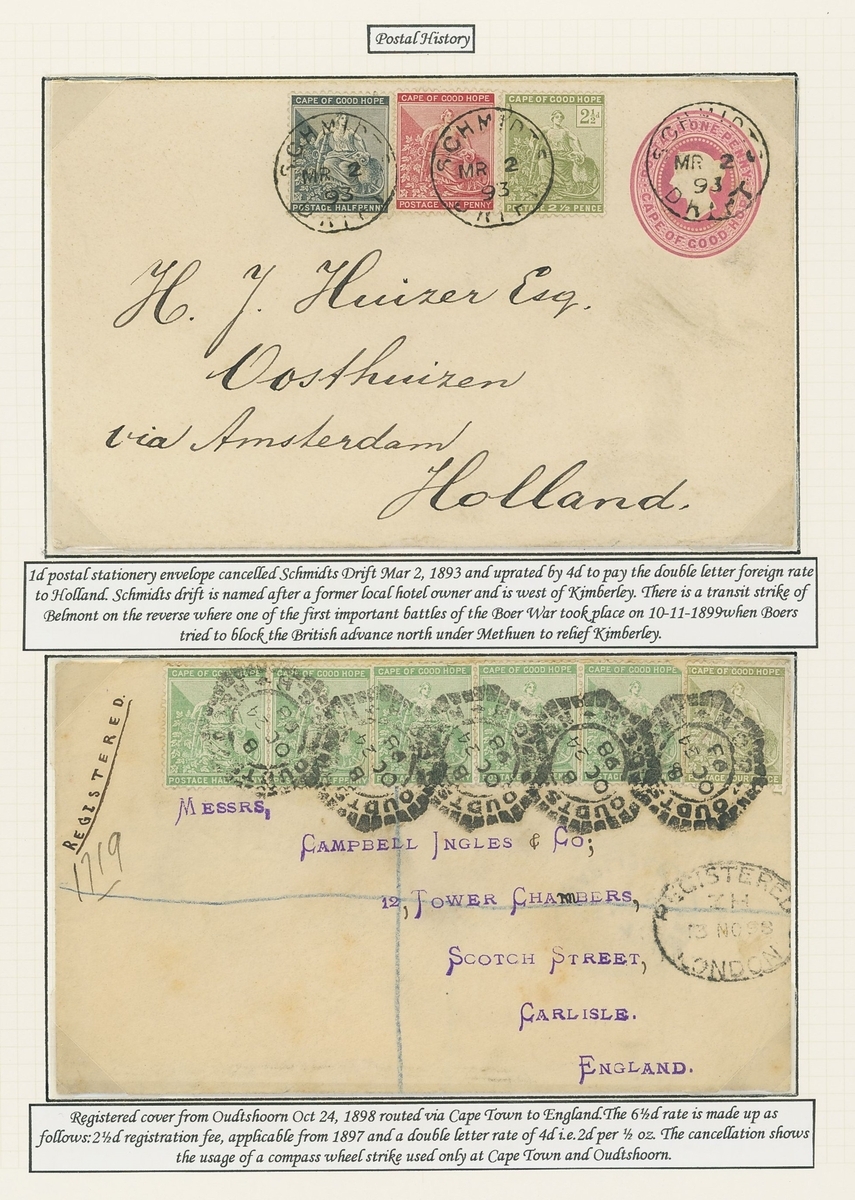 Postal History
CAPE OF GOOD HOPE
CAPE OF GOOD HOPE
CAPE OF GOOD HOPE
2½d
POSTAGE HALFPENNY
POSTAGE ONE PENNY
POSTAGE 2½ PENCE
SCHMIDTS
MR 2
93
DRIFT
SCHMIDTS
MR 2
93
DRIFT
ONE PENNY
CAPE OF GOOD HOPE
SCHMIDTS
MR 2
93
DRIFT
H. J. Huizer Esq.
Oosthuizen
via Amsterdam
Holland.
1d postal stationery envelope cancelled Schmidts Drift Mar 2, 1893 and uprated by 4d to pay the double letter foreign rate
to Holland. Schmidts drift is named after a former local hotel owner and is west of Kimberley. There is a transit strike of
Belmont on the reverse where one of the first important battles of the Boer War took place on 10-11-1899when Boers
tried to block the British advance north under Methuen to relief Kimberley.
CAPE OF GOOD HOPE
CAPE OF GOOD HOPE
CAPE OF GOOD HOPE
CAPE OF GOOD HOPE
CAPE OF GOOD HOPE
CAPE OF GOOD HOPE
POSTAGE HALFPENNY
OC 24
98
OUDTS
REGISTERED.
1719
MESSRS,
CAMPBELL INGLES & CO;
12, TOWER CHAMBERS,
SCOTCH STREET,
CARLISLE.
ENGLAND.
REGISTERED
ZH
13 NO 98
LONDON
Registered cover from Oudtshoorn Oct 24, 1898 routed via Cape Town to England.The 6½d rate is made up as
follows:2½d registration fee, applicable from 1897 and a double letter rate of 4d i.e.2d per ½ oz. The cancellation shows
the usage of a compass wheel strike used only at Cape Town and Oudtshoorn.